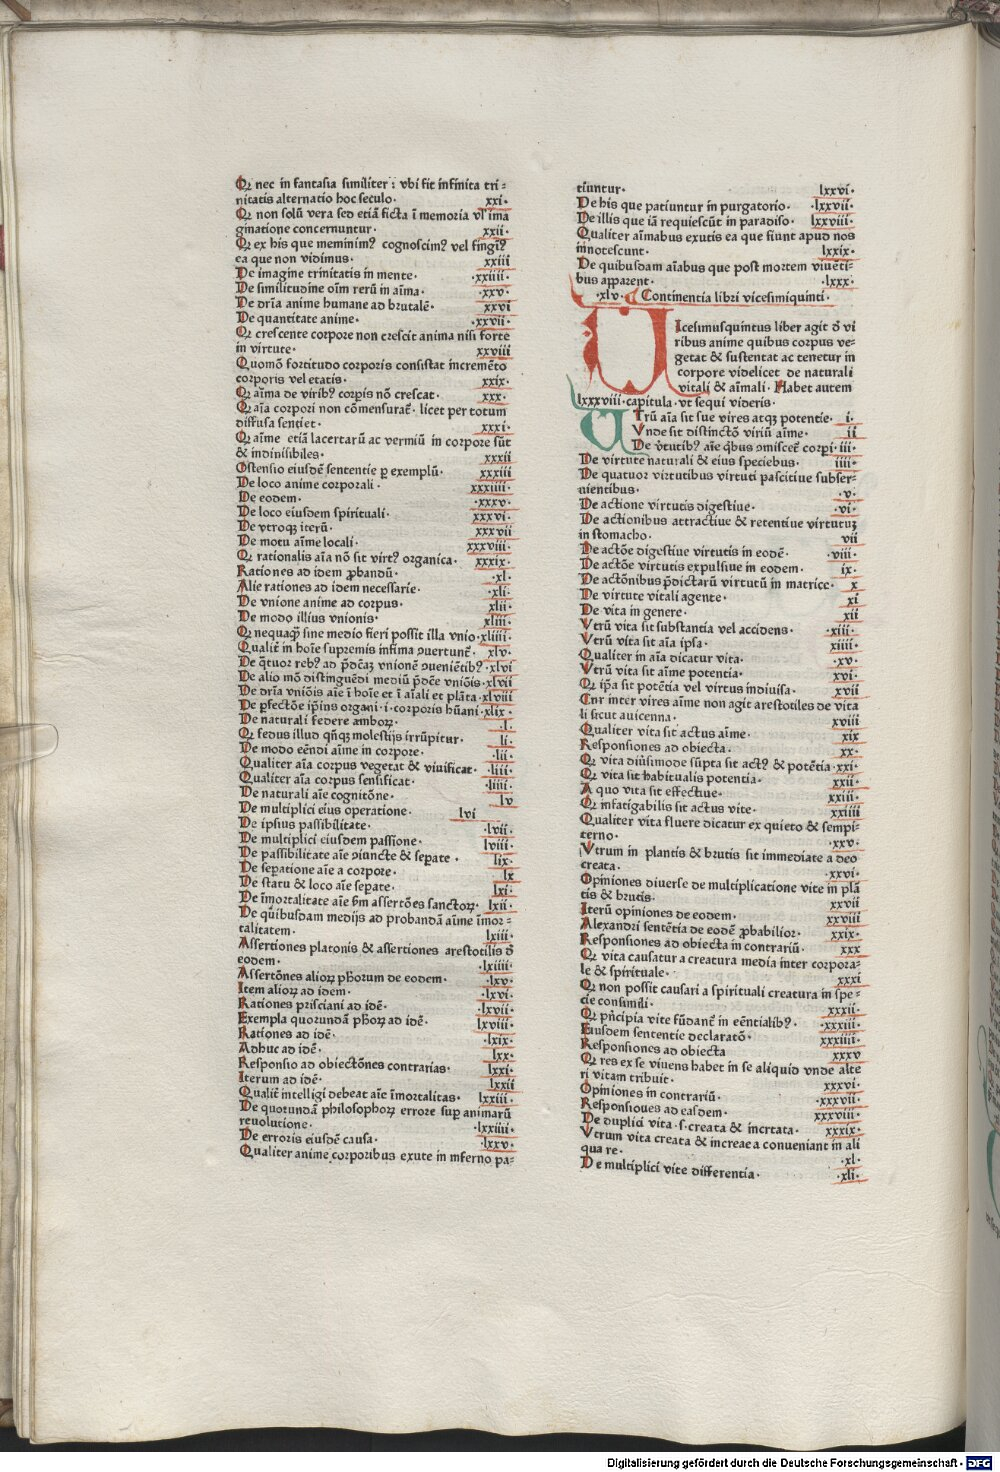 Qꝛ nec in fantasia similiter : vbi fit infinita tri⸗
nitatis alternatio hoc seculo· xxi·
Qꝛ non solū vera sed etiā ficta ī memoria vl' ima
ginatione concernuntur· xxii·
Qꝛ ex his que meminimꝰ cognoscimꝰ vel fingiꝰ
ea que non vidimus· xxiii
De imagine trinitatis in mente· ·xxiiii·
De similitudine oīm rerū in aīma· ·xxv·
De dr̄ia anime humane ad brutalē· xxvi
De quantitate anime· ·xxvii·
Qꝛ crescente corpore non crescit anima nisi forte
in virtute· xxviii
Quomō fortitudo corporis consistat incremēto
corporis vel etatis· xxix·
Qꝛ aīma de viribꝰ corpis nō crescat· xxx·
Qꝛ aīa corpori non cōmensurat̄· licet per totum
diffusa sentiet· xxxi·
Qꝛ aīme etiā lacertarū ac vermiū in corpore sūt
& indiuisibiles· xxxii
Ostensio eiusdē sententie ꝑ exemplū· xxxiii
De loco anime corporali· xxxiiii·
De eodem· ·xxxv·
De loco eiusdem spirituali· xxxvi·
De vtroqꝫ iterū· xxxvii
De motu aīme locali· xxxviii·
Qꝛ rationalis aīa nō sit virtꝰ organica· xxxix·
Rationes ad idem ꝓbandū· ·xl·
Alie rationes ad idem necessarie· ·xli·
De vnione anime ad corpus· xlii·
De modo illius vnionis· xliii·
Qꝛ nequaqꝫ̄ sine medio fieri possit illa vnio·xliiii·
Qualit̄ in hoīe supremis infima ꝯuertunt̄· xlv·
De q̄tuor rebꝰ ad p̄dc̄aꝫ vnionē ꝯueniētibꝰ·xlvi
De alio mō distinguēdi mediū p̄dc̄e vniōis·xlvii
De dr̄ia vniōis aīe ī hoīe et ī aīali et plāta·xlviii
De ꝑfectōe ip̄ius organi·i·corporis hūani·xlix·
De naturali federe amboꝝ· ·l·
Qꝛ fedus illud qn̄qꝫ molestijs irrūpitur· li·
De modo eēndi aīme in corpore· ·lii·
Qualiter aīa corpus vegetat & viuificat· ·liii·
Qualiter aīa corpus sensificat· ·liiii·
De naturali aīe cognitōne· lv
De multiplici eius operatione· lvi
De ipsius passibilitate· ·lvii·
De multiplici eiusdem passione· lviii·
De passibilitate aīe ꝯiuncte & sepate· lix·
De sepatione aīe a corpore· lx
De statu & loco aīe sepate· lxi·
De īmortalitate aīe ẜm assertōes sanctoꝝ· lxii·
De quibusdam medijs ad probandā aīme īmor⸗
talitatem· lxiii·
Assertiones platonis & assertiones arestotilis d̄
eodem· ·lxiiii·
Assertōnes alioꝝ phōrum de eodem· ·lxv·
Item alioꝝ ad idem· ·lxvi·
Rationes prisciani ad idē· ·lxvii·
Exempla quorundā phōꝝ ad idē· lxviii·
Rationes ad idē· ·lxix·
Adhuc ad idē· lxx·
Responsio ad obiectōnes contrarias· lxxi·
Iterum ad idē· lxxii
Qualit̄ intelligi debeat aīe īmortalitas· lxxiii·
De quorundā philosophoꝝ errore sup animarū
reuolutione· ·lxxiiii·
De erroris eiusdē causa· ·lxxv·
Qualiter anime corporibus exute in inferno pa⸗
tiuntur· lxxvi·
De his que patiuntur in purgatorio· ·lxxvii·
De illis que iā requiescūt in paradiso· lxxviii·
Qualiter aīmabus exutis ea que fiunt apud nos
innotescunt· lxxix·
De quibusdam aīabus que post mortem viueti⸗
bus apparent· ·lxxx·
·xlv· Continentia libri vicesimiquinti·
VIcesimusquintus liber agit d̄ vi
ribus anime quibus corpus ve⸗
getat & sustentat ac tenetur in
corpore videlicet de naturali
vitali & aīmali· Habet autem
lxxxviii·capitula·vt sequi videris·
VTrū aīa sit sue vires atqꝫ potentie· i·
Vnde sit distinctō viriū aīme· ii
De v̄tutibꝰ aīe q̄bus ꝯmiscet̄ corpi·iii·
De virtute naturali & eius speciebus· iiii·
De quatuor virtutibus virtuti pascitiue subser⸗
uientibus· ·v·
De actione virtutis digestiue· ·vi·
De actionibus attractiue & retentiue virtutuꝫ
in stomacho· vii
De actōe digestiue virtutis in eodē· ·viii·
De actōe virtutis expulsiue in eodem· ix·
De actōnibus p̄dictarū virtutū in matrice· x
De virtute vitali agente· xi
De vita in genere· xii
Vtrū vita sit substantia vel accidens· ·xiii·
Vtrū vita sit aīa ipsa· xiiii·
Qualiter in aīa dicatur vita· ·xv·
Vtrū vita sit aīme potentia· xvi·
Qꝛ ip̄a sit potētia vel virtus indiuisa· xvii
Cur inter vires aīme non agit arestotiles de vita
li sicut auicenna· xviii
Qualiter vita sit actus aīme· xix
Responsiones ad obiecta· xx·
Qꝛ vita diuīsimode sūpta sit actꝰ & potētia·xxi·
Qꝛ vita sit habitualis potentia· xxii·
A quo vita sit effectiue· xxiii·
Qꝛ infatigabilis sit actus vite· xxiiii
Qualiter vita fluere dicatur ex quieto & sempi⸗
terno· ·xxv·
Vtrum in plantis & brutis sit immediate a deo
creata· ·xxvi·
Opiniones diuerse de multiplicatione vite in plā
tis & brutis· xxvii
Iterū opiniones de eodem· xxviii
Alexandri sentētia de eodē ꝓbabilior· xxix·
Responsiones ad obiecta in contrariū· xxx
Qꝛ vita causatur a creatura media inter corpora⸗
le & spirituale· xxxi
Qꝛ non possit causari a spirituali creatura in spe⸗
cie consimili· xxxii·
Qꝛ pn̄cipia vite fūdant̄ in eēntialibꝰ· ·xxxiii·
Eiusdem sententie declaratō· xxxiiii·
Responsiones ad obiecta xxxv
Qꝛ res ex se viuens habet in se aliquid vnde alte
ri vitam tribuit· xxxvi·
Opiniones in contrariū· ·xxxvii·
Responsioues ad easdem· xxxviii·
De duplici vita·s·creata & incrtata· xxxix·
Vtrum vita creata & increaea conueniant in ali
qua re· ·xl·
De multiplici vite differentia· ·xli·
Digitalisierung gefördert durch die Deutsche Forschungsgemeinschaft · DFG